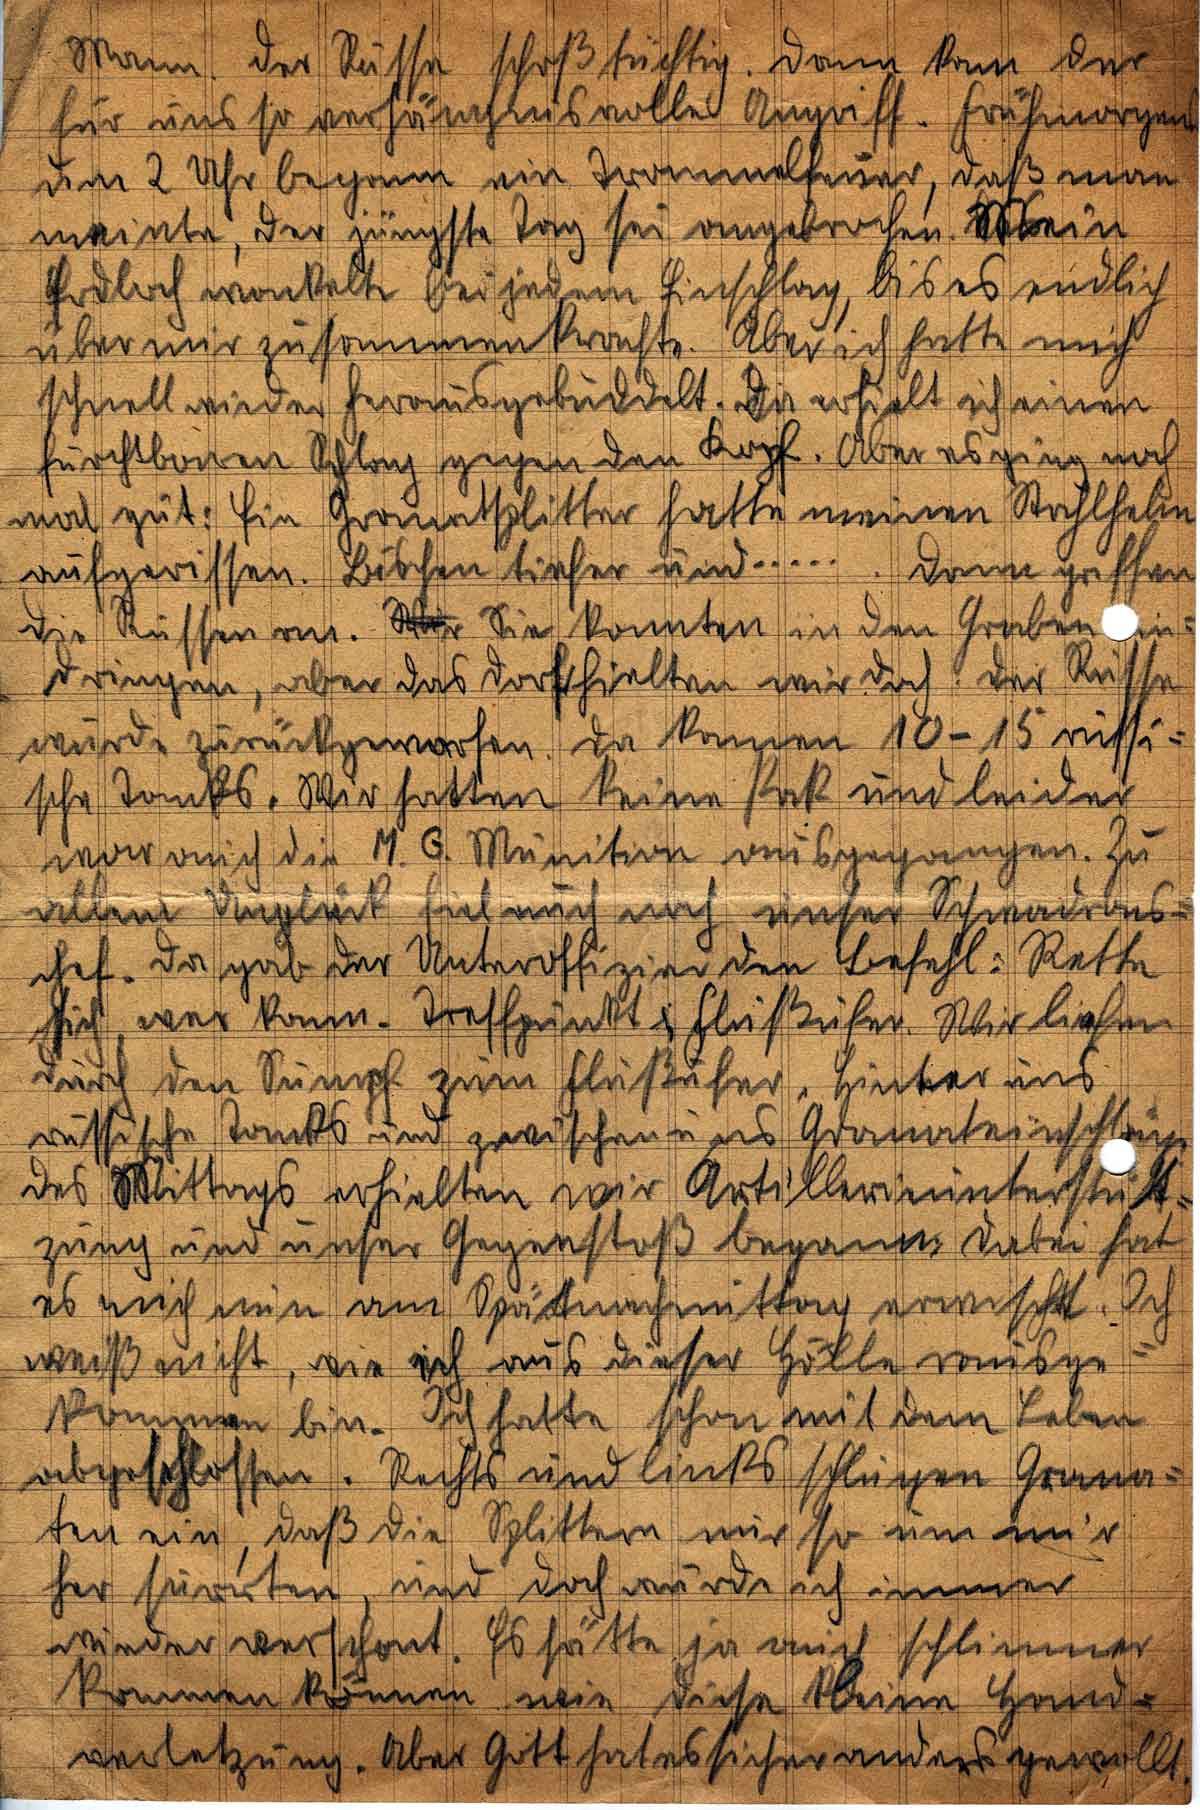 Mann. Der Russe schoß tüchtig. Dann kam der
für uns so verhängnisvolle Angriff. Frühmorgens
um 2 Uhr begann ein Trommelfeuer, daß man
meinte, der jüngste Tag sei angebrochen. Mein
Erdloch wankelte bei jedem Einschlag, bis es endlich
über mir zusammenkrachte. Aber ich hatte mich
schnell wieder herausgebuddelt. Da erhielt ich einen
furchtbaren Schlag gegen den Kopf. Aber es ging noch
mal gut: Ein Granatsplitter hatte meinen Stahlhelm
aufgerissen. Bischen tiefer und ..... . Dann griffen
die Russen an. Sie konnten in den Graben ein=
dringen, aber das Dorf hielten wir doch. Der Russe
wurde zurückgeworfen. Da kamen 10-15 russi=
sche Tanks. Wir hatten keine Pak und leider
war auch die M.G. Munition ausgegangen. Zu
allem Unglück fiel auch noch unser Schwadrons=
chef. Da gab der Unteroffizier den Befehl: Rette
sich wer kann. Treffpunkt Flußufer. Wir liefen
durch den Sumpf zum Flußufer, hinter uns
russische Tanks und zwischen uns Granateinschläge
Des Mittags erhielten wir Artillerieunterstüt=
zung und unser Gegenstoß begann. Dabei hat
es mich nun am Spätnachmittag erwischt. Ich
weiß nicht, wie ich aus dieser Hölle rausge=
kommen bin. Ich hatte schon mit dem Leben
abgeschlossen. Rechts und links schlugen Grana=
ten ein, daß die Splittern nur so um mir
her surrten, und doch wurde ich immer
wieder verschont. Es hätte ja auch schlimmer
kommen können wie diese kleine Hand=
verletzung. Aber Gott hat es sicher anders gewollt.